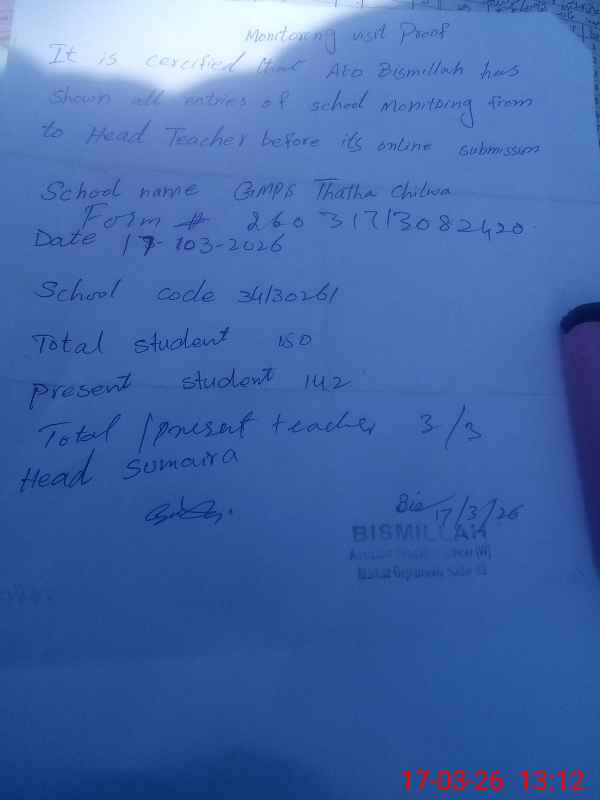 Monitoring visit Proof
It is cercified that Aeo Bismillah has
shown all entries of school Monitoing from
to Head Teacher before its online submission
School name GMPS Thatha Chilwa
Form # 260 31713082420
Date 17-103-2026
School code 34130261
Total student 150
present student 142
Total / present teacher 3/3
Head Sumaira
Bis 17/3/26
BISMILLAH
17-03-26 13:12